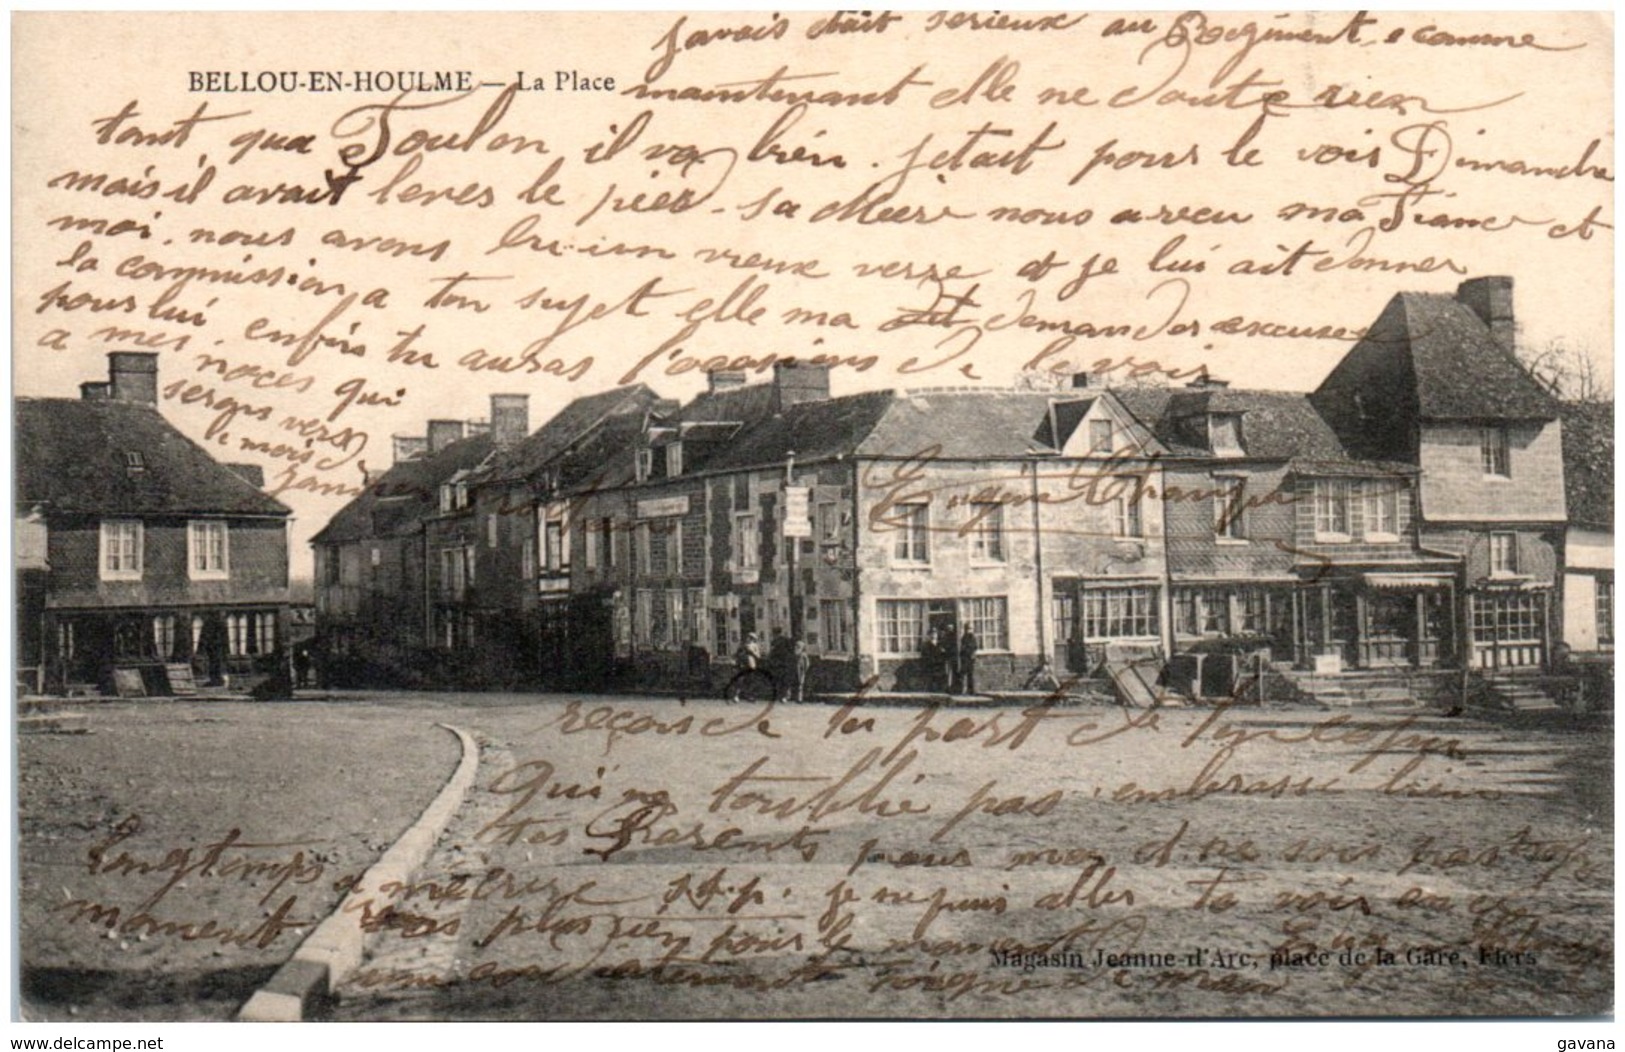 javais était serieux au Regiment, e comme
BELLOU-EN-HOULME — La Place
maintenant elle ne doute rien
tant qua Toulon il va bien. jetait pour le vois Dimanche
mais il avait leves le pied. Sa Meere nous a recu ma Fiance et
moi. nous avons bu un vieux verre et je lui ait donner
la commission a ton sujet elle ma dit demander excuses
pour lui. enfin tu auras l'occasions de le voir
a mes noces qui
serons vers
le mois d
janvier prochain
Eugène
reçois de la part de ton copin
Qui ne toublie pas. embrasse bien
tes Parents pour moi et ne sois pas trop
longtemps a mecrire s.t.p. je ne puis aller te voir
moment vois plus rien pour le moment
Magasin Jeanne-d'Arc, place de la Gare, Flers
http://www.delcampe.net
gavana